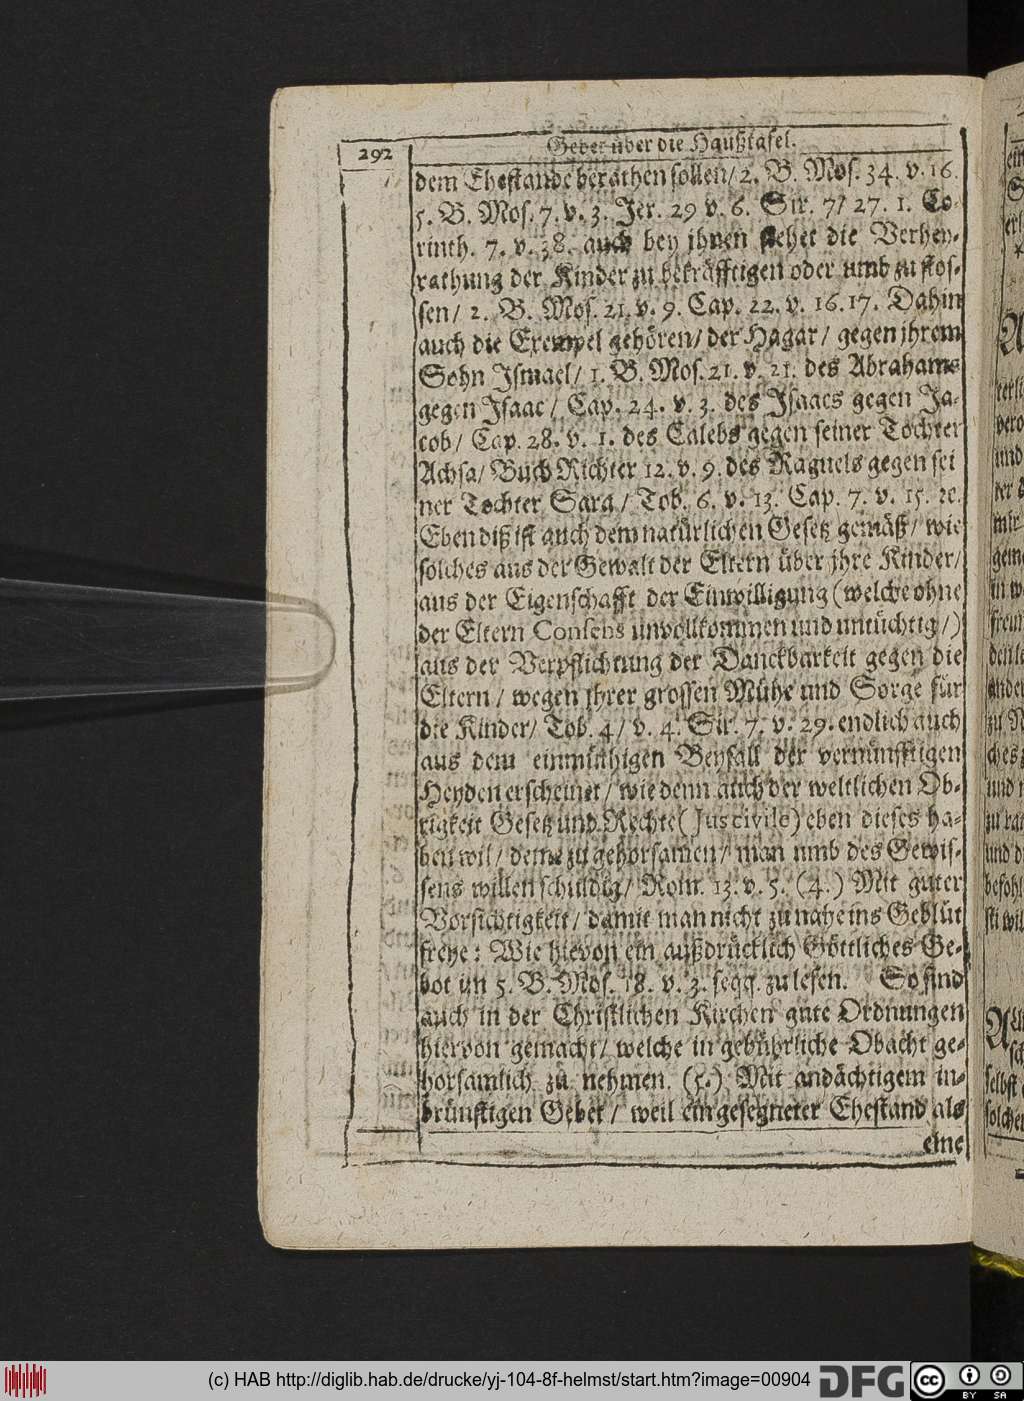 292
Gebet über die Haußtafel.
dem Ehestande berathen sollen/ 2. B. Mos. 34. v. 16.
5. B. Mos. 7. v. 3. Jer. 29 v. 6. Sir. 7/ 27. 1. Co-
rinth. 7. v. 38. auch bey jhnen stehet die Verhey-
rathung der Kinder zu bekräfftigen oder umb zu stos-
sen/ 2. B. Mos. 21. v. 9. Cap. 22. v. 16. 17. Dahin
auch die Exempel gehören/ der Hagar/ gegen jhrem
Sohn Ismael/ 1. B. Mos. 21. v. 21. des Abrahams
gegen Isaac/ Cap. 24. v. 3. des Isaacs gegen Ja-
cob/ Cap. 28. v. 1. des Calebs gegen seiner Tochter
Achsa/ Buch Richter 12. v. 9. des Raguels gegen sei
ner Tochter Sara/ Tob. 6. v. 13. Cap. 7. v. 15. ꝛc.
Eben diß ist auch dem natürlichen Gesetz gemäß/ wie
solches aus der Gewalt der Eltern über jhre Kinder/
aus der Eigenschafft der Einwilligung (welche ohne
der Eltern Consens unvollkommen und untüchtig/)
aus der Verpflichtung der Danckbarkeit gegen die
Eltern/ wegen jhrer grossen Mühe und Sorge für
die Kinder/ Tob. 4/ v. 4. Sir. 7. v. 29. endlich auch
aus dem einmüthigen Beyfall der vernünfftigen
Heyden erscheinet/ wie denn auch der weltlichen Ob-
rigkeit Gesetz und Rechte (Jus civile) eben dieses ha-
ben wil/ deme zu gehorsamen/ man umb des Gewis-
sens willen schuldig/ Rom. 13. v. 5. (4.) Mit guter
Vorsichtigkeit/ damit man nicht zu nahe ins Geblüt
freye: Wie hievon ein außdrücklich Göttliches Ge-
bot im 5. B. Mos. 18. v. 3. seqq. zu lesen. So sind
auch in der Christlichen Kirchen gute Ordnungen
hiervon gemacht/ welche in gebührliche Obacht ge-
horsamlich zu nehmen. (5.) Mit andächtigem in-
brünstigen Gebet/ weil ein gesegneter Ehestand als
eine
(c) HAB http://diglib.hab.de/drucke/yj-104-8f-helmst/start.htm?image=00904
DFG
cc
BY SA